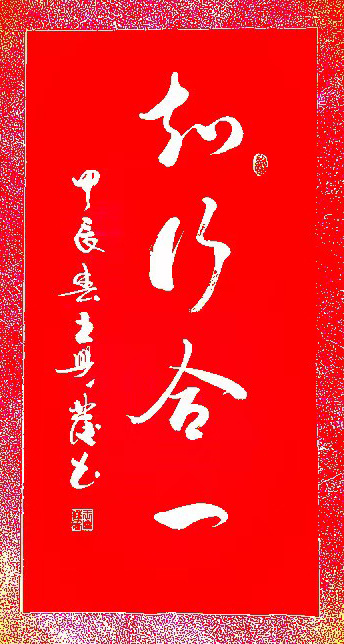 知行合一
甲辰春王興茂書